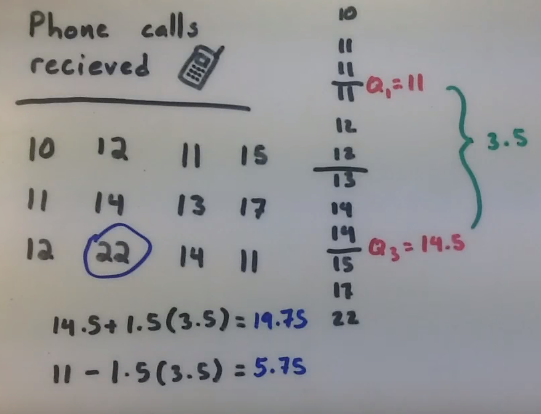 Phone calls
recieved
10 12 11 15
11 14 13 17
12 22 14 11
14.5 + 1.5(3.5) = 19.75
11 - 1.5(3.5) = 5.75
10
11
11
11
Q₁=11
12
12
13
14
14
15
Q₃=14.5
17
22
3.5